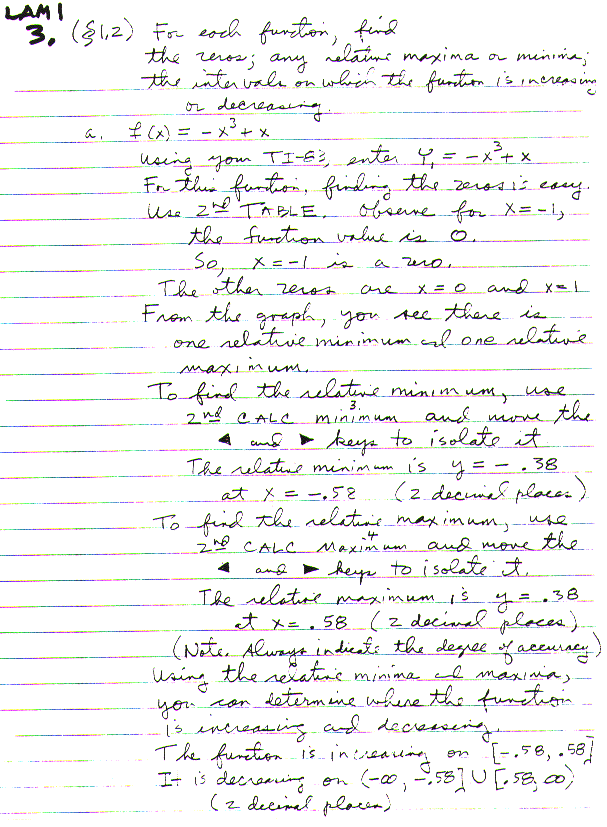 LAM1
3. (§1,2) For each function, find
the zeros; any relative maxima or minima;
the intervals on which the function is increasing
or decreasing.
a. f(x) = -x³ + x
Using your TI-83, enter Y₁ = -x³ + x
For this function, finding the zeros is easy.
Use 2nd TABLE. Observe for X = -1,
the function value is 0.
So, x = -1 is a zero.
The other zeros are x = 0 and x = 1
From the graph, you see there is
one relative minimum and one relative
maximum.
To find the relative minimum, use
2nd CALC minimum 3 and move the
◄ and ► keys to isolate it
The relative minimum is y = -.38
at x = -.58 (2 decimal places)
To find the relative maximum, use
2nd CALC Maximum 4 and move the
◄ and ► keys to isolate it.
The relative maximum is y = .38
at x = .58 (2 decimal places)
(Note. Always indicate the degree of accuracy)
Using the relative minima and maxima,
you can determine where the function
is increasing and decreasing.
The function is increasing on [-.58, .58]
It is decreasing on (-∞, -.58] U [.58, ∞)
(2 decimal places)